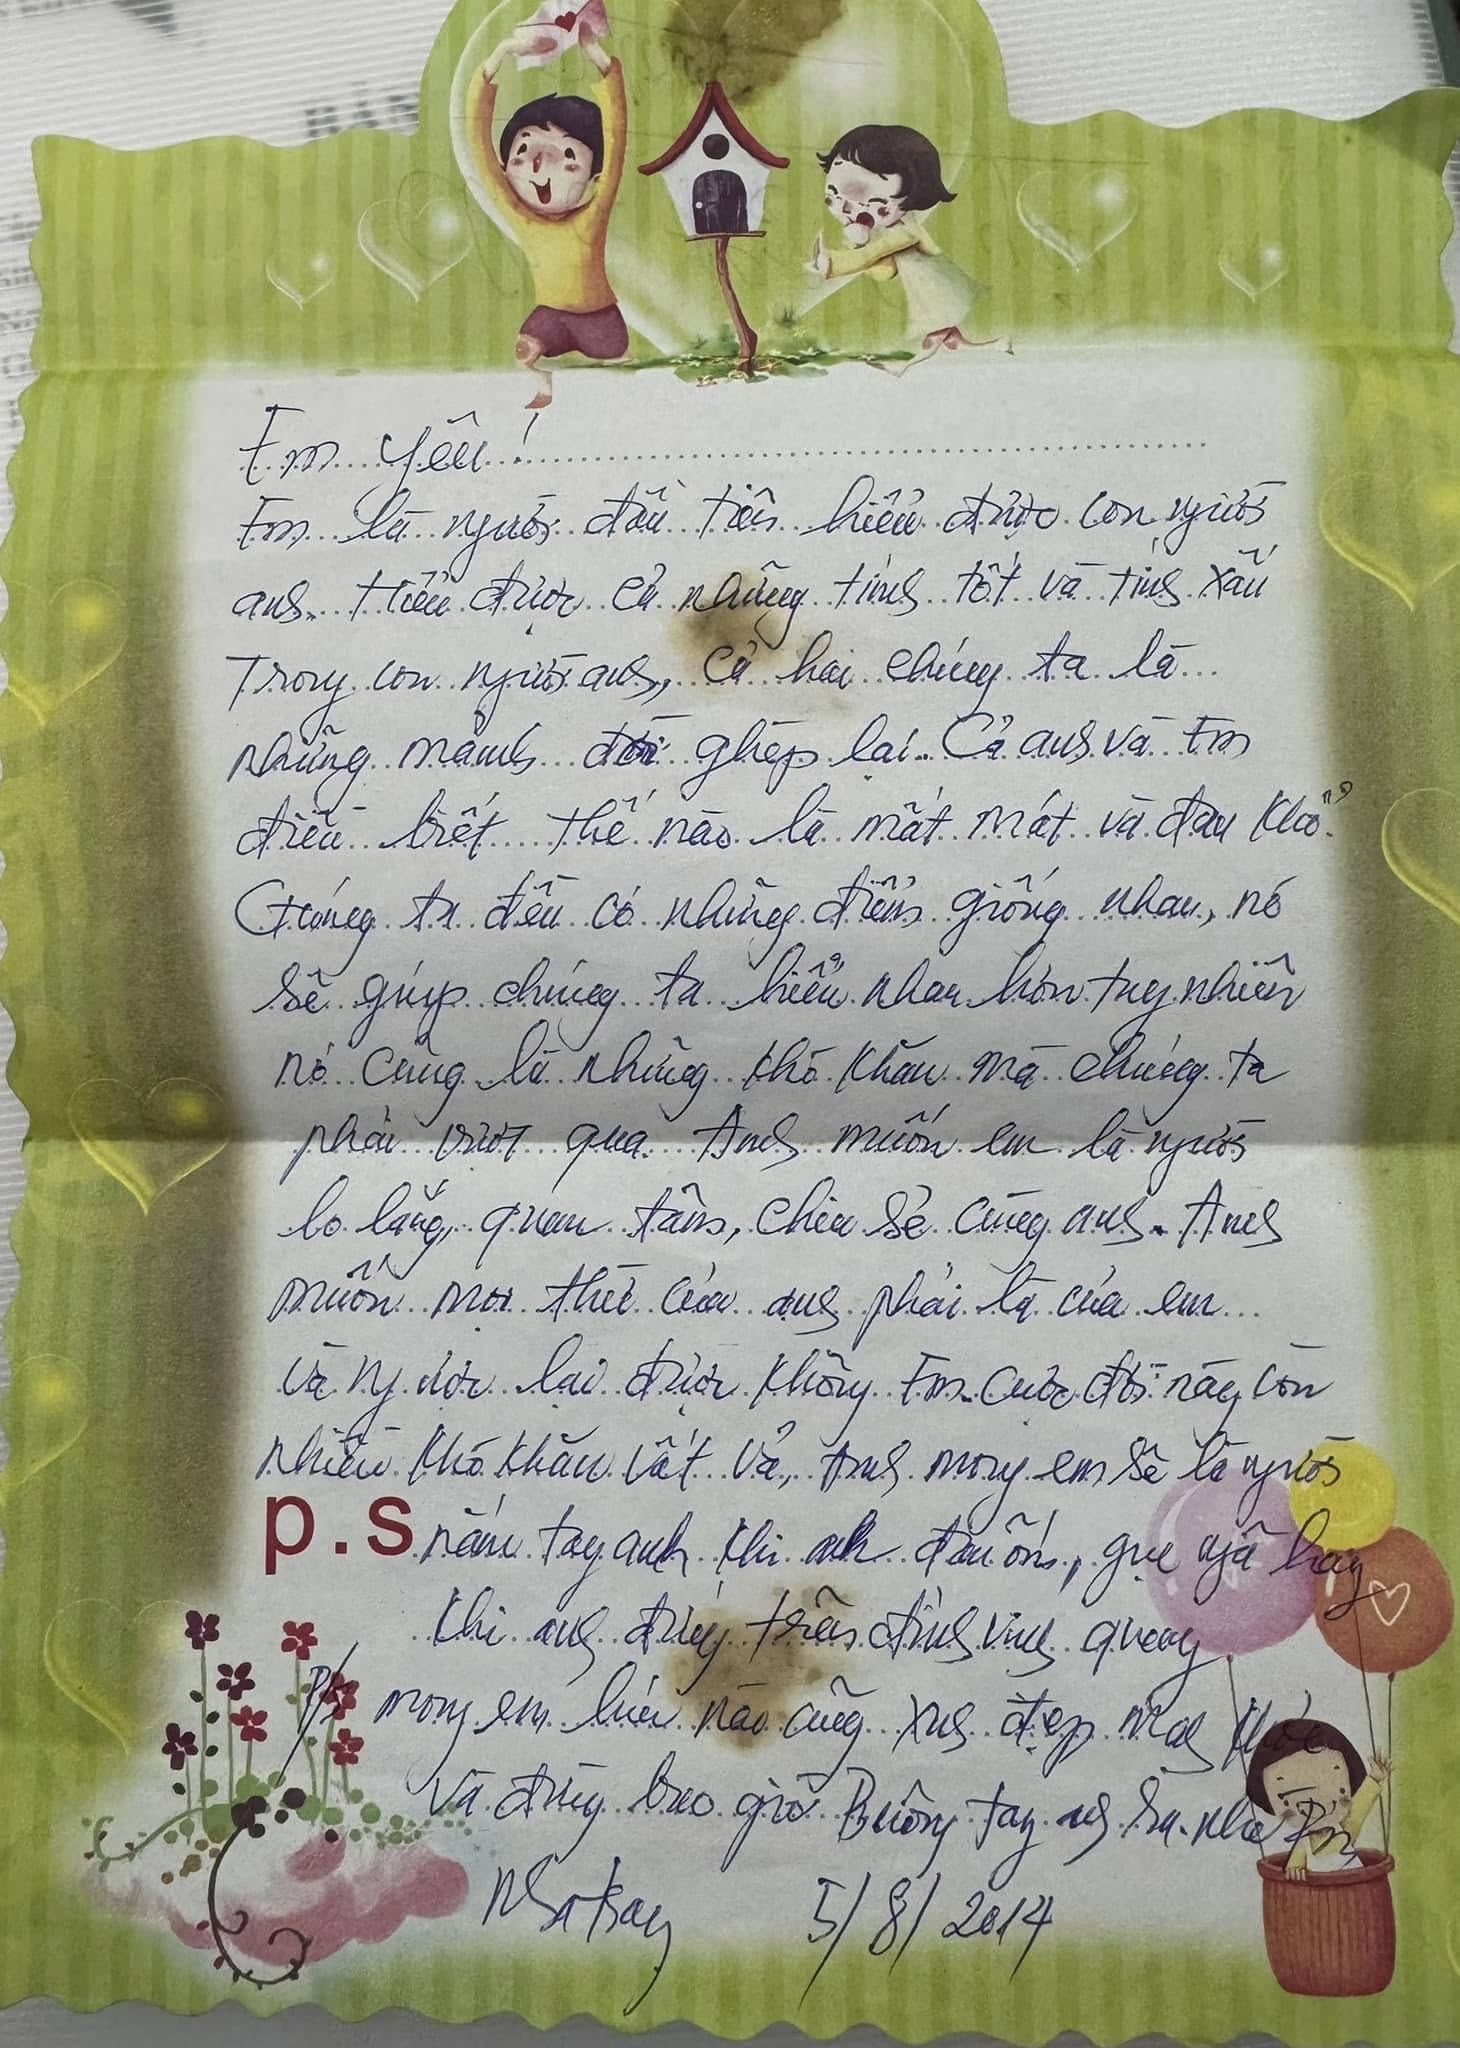 BẢN
Em yêu!
Em là người đầu tiên hiểu được con người
anh. Hiểu được cả những tính tốt và tính xấu
Trong con người anh, Cả hai chúng ta là
những mảnh đời ghép lại. Cả anh và Em
điều biết thế nào là mất mát và đau khổ.
Chúng ta đều có những điểm giống nhau, nó
sẽ giúp chúng ta hiểu nhau hơn tuy nhiên
nó cũng là những khó khăn mà chúng ta
phải vượt qua. Anh muốn em là người
lo lắng, quan tâm, chia sẻ cùng anh. Anh
muốn mọi thứ của anh phải là của em
và ngược lại được không Em. Cuộc đời này còn
nhiều khó khăn vất vả, Anh mong em sẽ là người
p.s nắm tay anh khi anh đau ốm, gục ngã hay
khi anh đứng trên đỉnh vinh quang
P/s mong em lúc nào cũng xinh đẹp mạnh khỏe
Và đừng bao giờ Buông tay anh ra nhé Em
Nha Trang 5/8/2014